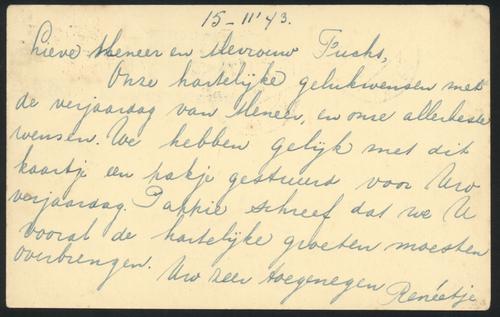 15-11'43.
Lieve Meneer en Mevrouw Fuchs,
Onze hartelijke gelukwensen met
de verjaardag van Meneer, en onze allerbeste
wensen. We hebben gelijk met dit
kaartje een pakje gestuurd voor Uw
verjaardag. Pappie schreef dat we U
vooral de hartelijke groeten moesten
overbrengen. Uw zeer toegenegen
Renéetje